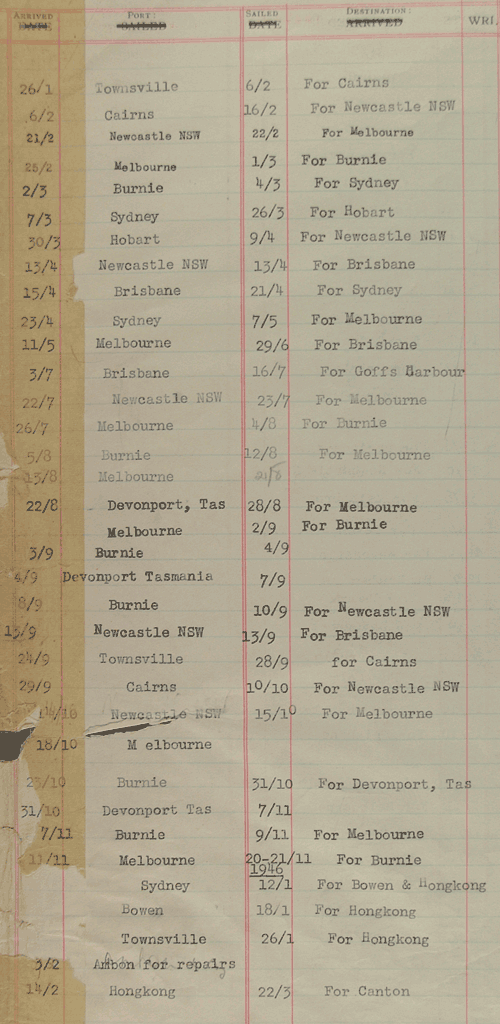 ARRIVED PORT: SAILED DESTINATION:
DATE SAILED DATE ARRIVED WRI
26/1 Townsville 6/2 For Cairns
6/2 Cairns 16/2 For Newcastle NSW
21/2 Newcastle NSW 22/2 For Melbourne
25/2 Melbourne 1/3 For Burnie
2/3 Burnie 4/3 For Sydney
7/3 Sydney 26/3 For Hobart
30/3 Hobart 9/4 For Newcastle NSW
13/4 Newcastle NSW 13/4 For Brisbane
15/4 Brisbane 21/4 For Sydney
23/4 Sydney 7/5 For Melbourne
11/5 Melbourne 29/6 For Brisbane
3/7 Brisbane 16/7 For Goffs Harbour
22/7 Newcastle NSW 23/7 For Melbourne
26/7 Melbourne 4/8 For Burnie
5/8 Burnie 12/8 For Melbourne
13/8 Melbourne 21/8
22/8 Devonport, Tas 28/8 For Melbourne
Melbourne 2/9 For Burnie
3/9 Burnie 4/9
4/9 Devonport Tasmania 7/9
8/9 Burnie 10/9 For Newcastle NSW
13/9 Newcastle NSW 13/9 For Brisbane
24/9 Townsville 28/9 for Cairns
29/9 Cairns 10/10 For Newcastle NSW
14/10 Newcastle NSW 15/10 For Melbourne
18/10 M elbourne
23/10 Burnie 31/10 For Devonport, Tas
31/10 Devonport Tas 7/11
7/11 Burnie 9/11 For Melbourne
11/11 Melbourne 20-21/11 For Burnie
1946
Sydney 12/1 For Bowen & Hongkong
Bowen 18/1 For Hongkong
Townsville 26/1 For Hongkong
3/2 Ambon for repairs
14/2 Hongkong 22/3 For Canton